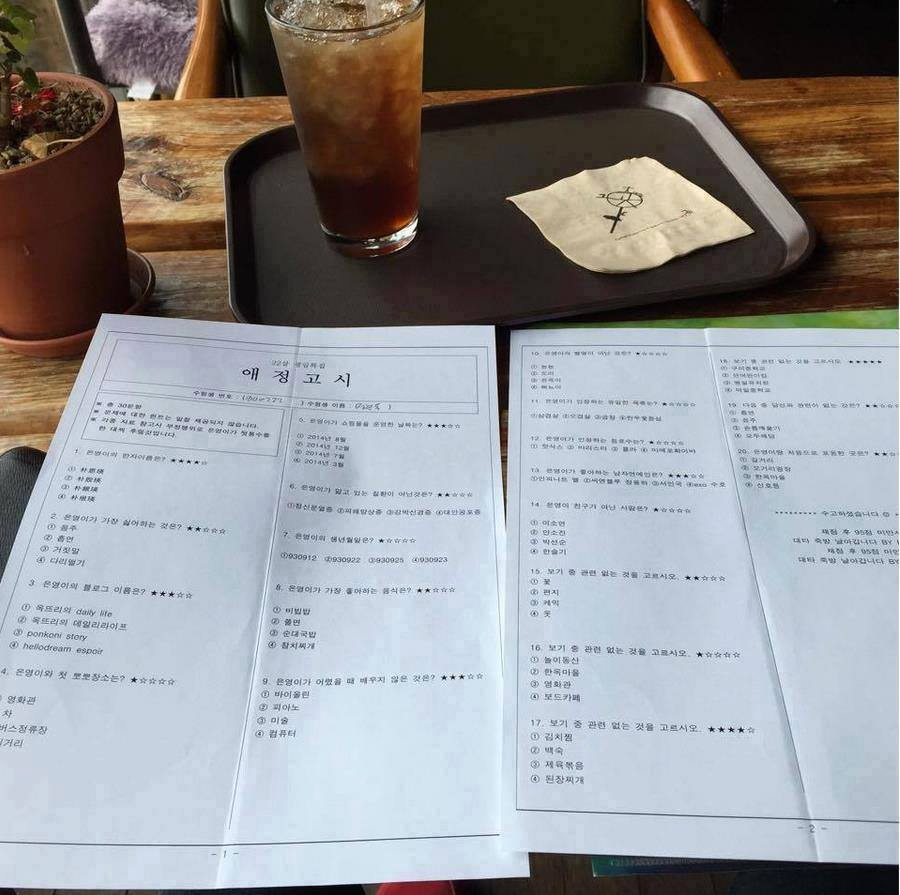 22살 생일특집
애 정 고 시
수험생 번호 : (
) 수험생 이름 : (
)
※ 총 30문항
※ 문제에 대한 힌트는 일절 제공되지 않습니다.
※ 각종 자료 참고시 부정행위로 은영이가 헛통수를
한 대씩 후릴것입니다.
1. 은영이의 한자이름은? ★★★★☆
① 朴恩瑛
② 朴殷瑛
③ 朴銀瑛
④ 朴垠瑛
2. 은영이가 가장 싫어하는 것은? ★★☆☆☆
① 음주
② 흡연
③ 거짓말
④ 다리떨기
3. 은영이의 블로그 이름은? ★★★☆☆
① 옥뜨리의 daily life
② 옥뜨리의 데일리라이프
③ ponkoni story
④ hellodream espoir
4. 은영이와 첫 뽀뽀장소는? ★☆☆☆☆
① 영화관
차
버스정류장
길거리
5. 은영이가 쇼핑몰을 운영한 날짜는? ★★★☆☆
① 2014년 8월
② 2014년 12월
③ 2014년 7월
④ 2014년 3월
6. 은영이가 앓고 있는 질환이 아닌것은? ★★☆☆☆
①정신분열증 ②피해망상증 ③강박신경증 ④대인공포증
7. 은영이의 생년월일은? ★☆☆☆☆
①930912 ②930922 ③930925 ④930923
8. 은영이가 가장 좋아하는 음식은? ★★☆☆☆
① 비빔밥
② 쫄면
③ 순대국밥
④ 참치찌개
9. 은영이가 어렸을 때 배우지 않은 것은? ★★★☆☆
① 바이올린
② 피아노
③ 미술
④ 컴퓨터
- 1 -
10. 은영이의 별명이 아닌 것은? ★☆☆☆☆
② 도리
11. 은영이가 인정하는 유일한 육류는? ★☆☆☆☆
①삼겹살 ②오겹살 ③곱창 ④한우꽃등심
12. 은영이가 인정하는 음료수는? ★☆☆☆☆
① 핫식스 ② 아리스타 ③ 콜라 ④ 미에로화이바
13. 은영이가 좋아하는 남자연예인은? ★★★☆☆
①인피니트 엘 ②씨엔블루 정용화 ③서인국 ④exo 수호
14. 은영이 친구가 아닌 사람은? ★☆☆☆☆
① 이소연
② 안소진
③ 박선순
④ 한슬기
15. 보기 중 관련 없는 것을 고르시오. ★★☆☆☆
① 꽃
② 편지
③ 케익
④ 옷
16. 보기 중 관련 없는 것을 고르시오. ★☆☆☆☆
① 놀이동산
② 한옥마을
③ 영화관
④ 보드카페
17. 보기 중 관련 없는 것을 고르시오. ★★★★☆
① 김치찜
② 백숙
③ 제육볶음
④ 된장찌개
18. 보기 중 관련 없는 것을 고르시오. ★★★★★
① 구리중학교
19. 다음 중 당신과 관련이 없는 것은? ★★☆☆
① 흡연
② 음주
③ 손톱깨물기
④ 모두해당
20. 은영이랑 처음으로 포옹한 곳은? ★★☆
① 길거리
② 오거리광장
③ 한옥마을
④ 신호등
--------- 수고하셨습니다 ☺
채점 후 95점 미만시
대타 죽방 날아갑니다 BY
채점 후 95점 미만
대타 죽방 날아갑니다 BY
- 2 -